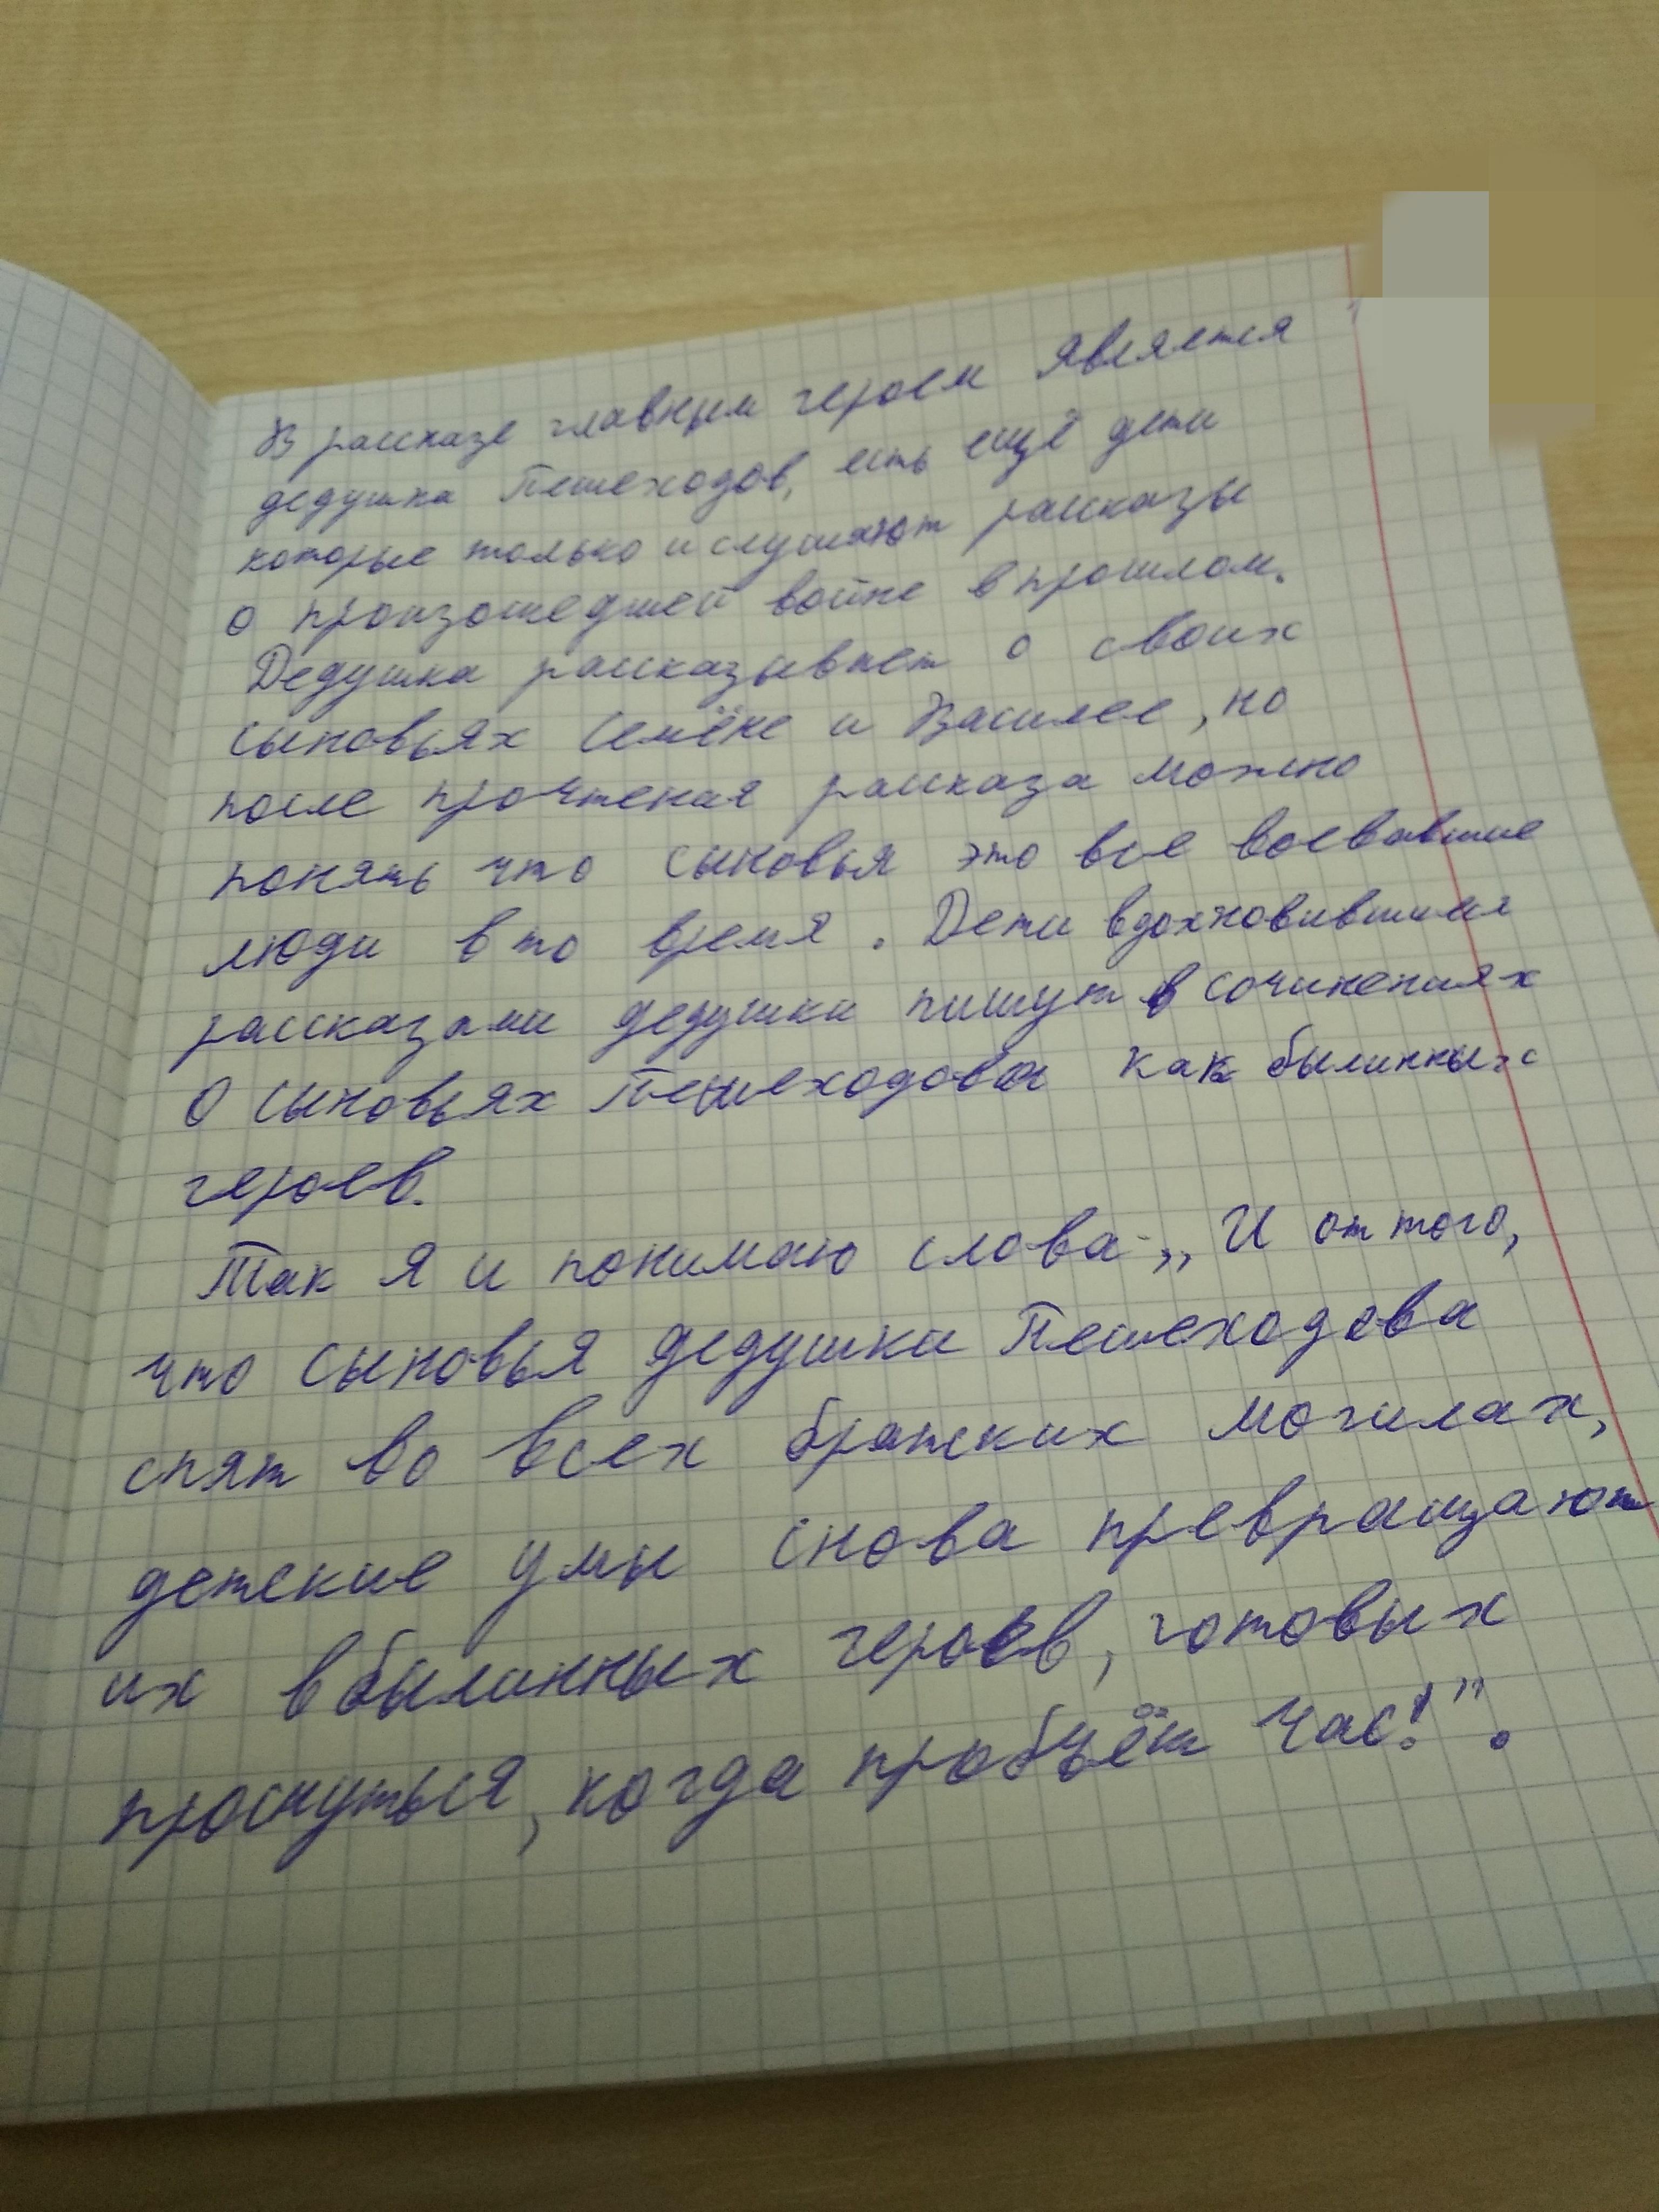 В рассказе главным героем является
дедушка Пешеходов, есть ещё дети
которые только и слушают рассказы
о произошедшей войне в прошлом.
Дедушка рассказывает о своих
сыновьях Семёне и Василее, но
после прочтения рассказа можно
понять что сыновья это все воевавшие
люди в то время. Дети вдохновившиеся
рассказами дедушки пишут в сочинениях
о сыновьях Пешеходова как былинных
героев.
Так я и понимаю слова „И от того,
что сыновья дедушки Пешеходова
спят во всех братских могилах,
детские умы снова превращают
их в былинных героев, готовых
проснуться, когда пробъёт час!”.